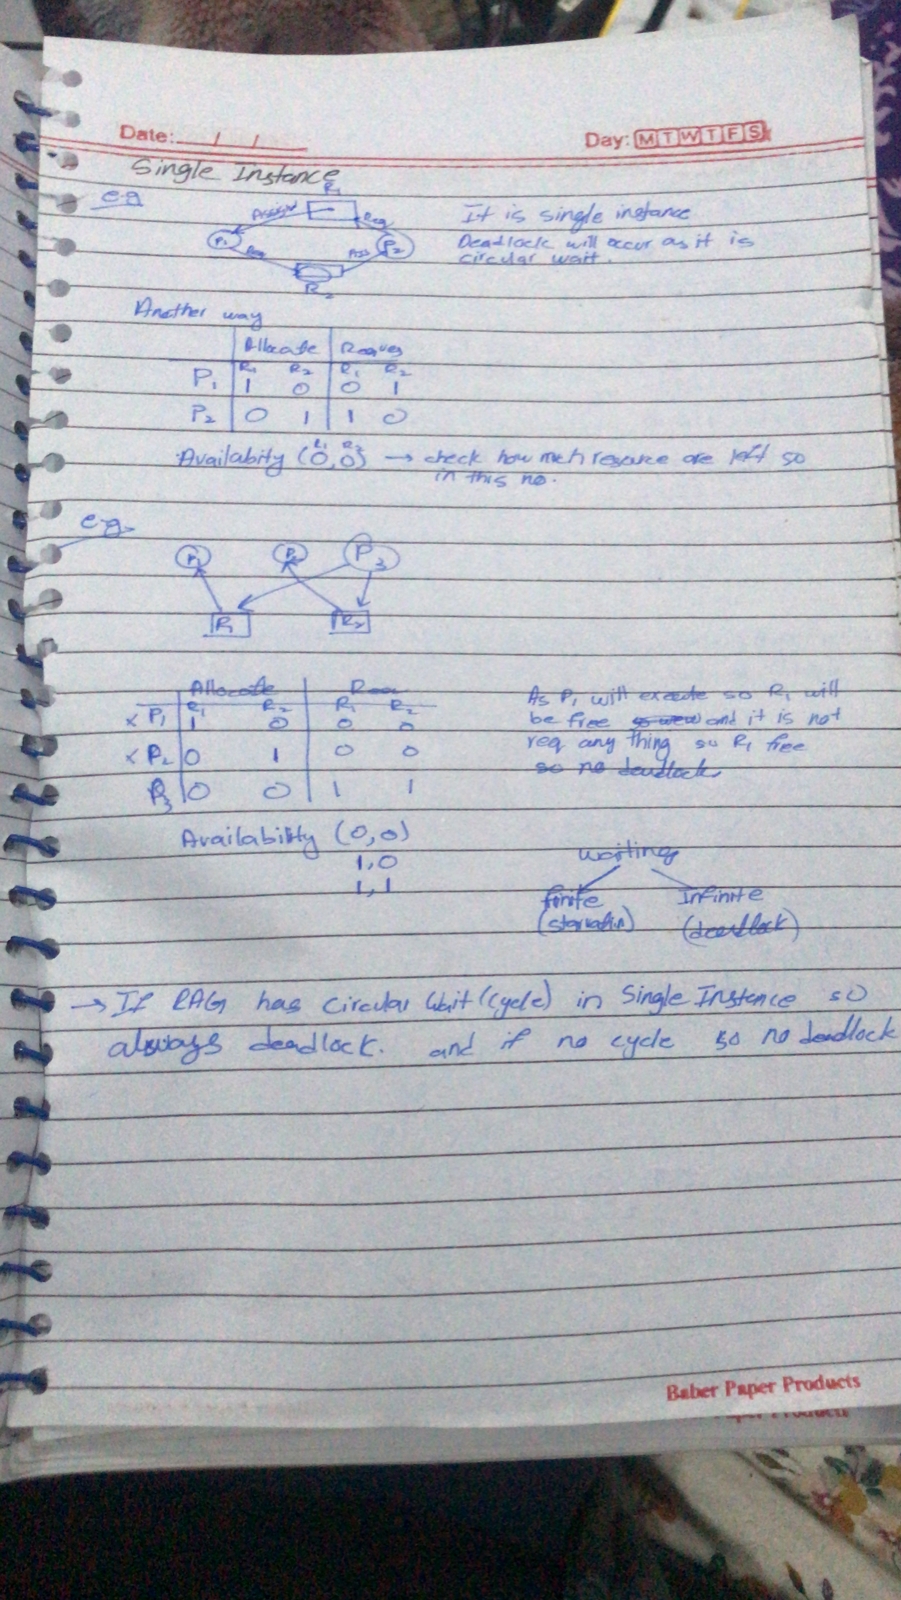 Date: / /
Day: M T W T F S
Single Instance
e.g
R1
Assign
Req
P1
P2
Req
Ass
R2
It is single instance
Deadlock will occur as it is
circular wait.
Another way
Allocate Reques
R1 R2 R1 R2
P1 1 0 0 1
P2 0 1 1 0
R1 R2
Availabity (0,0) → check how much resource are left so
in this no.
e.g
P1 P2 P3
R1 R2
Allocate Req
R1 R2 R1 R2
x P1 1 0 0 0
x P2 0 1 0 0
P3 0 0 1 1
As P1 will execute so R1 will
be free and it is not
req any thing so R1 free
so no deadlock
Availability (0,0)
1,0
1,1
waiting
finite Infinite
(starvatin) (deadlock)
→ If RAG has circular wait (cycle) in Single Instence so
always deadlock. and if no cycle so no deadlock
Baber Paper Products